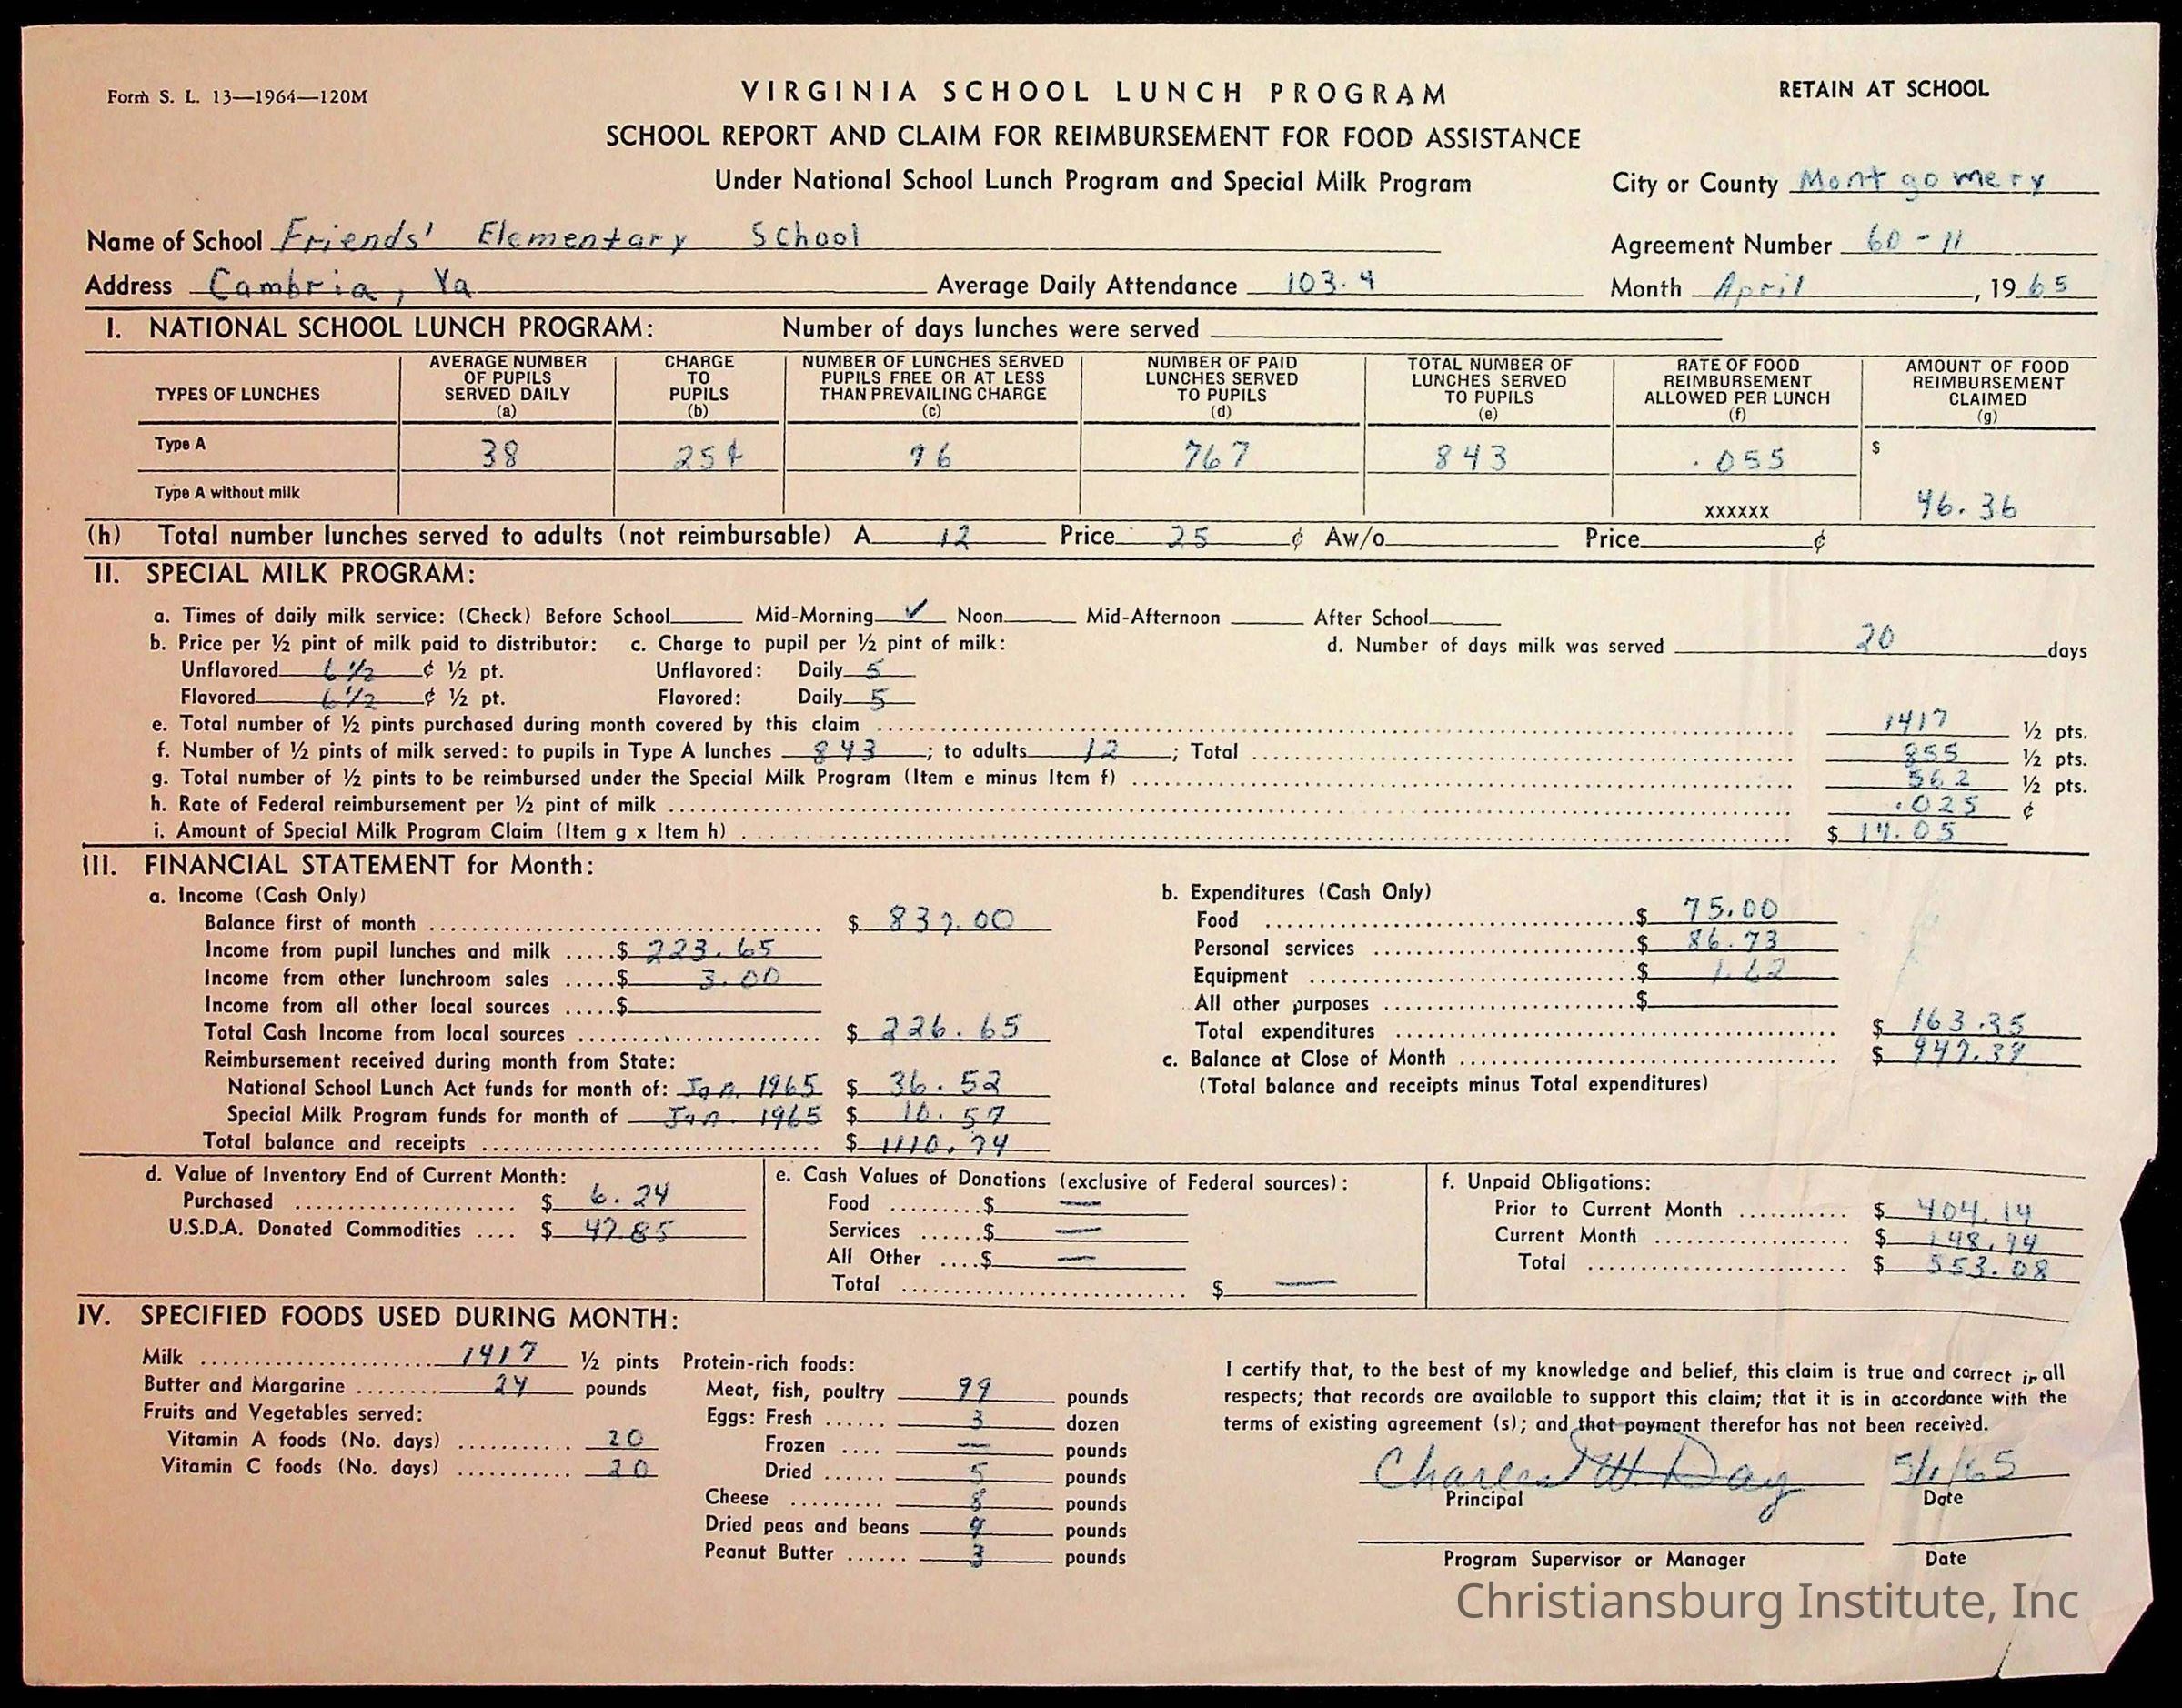 Form S. L. 13—1964—120M
VIRGINIA SCHOOL LUNCH PROGRAM
RETAIN AT SCHOOL
SCHOOL REPORT AND CLAIM FOR REIMBURSEMENT FOR FOOD ASSISTANCE
Under National School Lunch Program and Special Milk Program
City or County Montgomery
Name of School Friends' Elementary School
Agreement Number 60-11
Address Cambria, Va Average Daily Attendance 103.4
Month April, 1965
I. NATIONAL SCHOOL LUNCH PROGRAM: Number of days lunches were served
TYPES OF LUNCHES
AVERAGE NUMBER OF PUPILS SERVED DAILY (a)
CHARGE TO PUPILS (b)
NUMBER OF LUNCHES SERVED PUPILS FREE OR AT LESS THAN PREVAILING CHARGE (c)
NUMBER OF PAID LUNCHES SERVED TO PUPILS (d)
TOTAL NUMBER OF LUNCHES SERVED TO PUPILS (e)
RATE OF FOOD REIMBURSEMENT ALLOWED PER LUNCH (f)
AMOUNT OF FOOD REIMBURSEMENT CLAIMED (g)
Type A 38 25¢ 76 767 843 .055 $
Type A without milk XXXXXX 46.36
(h) Total number lunches served to adults (not reimbursable) A 12 Price 25 ¢ Aw/o Price ¢
II. SPECIAL MILK PROGRAM:
a. Times of daily milk service: (Check) Before School Mid-Morning ✓ Noon Mid-Afternoon After School
b. Price per ½ pint of milk paid to distributor: c. Charge to pupil per ½ pint of milk: d. Number of days milk was served 20 days
Unflavored 6 1/2 ¢ ½ pt. Unflavored: Daily 5
Flavored 6 1/2 ¢ ½ pt. Flavored: Daily 5
e. Total number of ½ pints purchased during month covered by this claim 1417 ½ pts.
f. Number of ½ pints of milk served: to pupils in Type A lunches 843; to adults 12; Total 855 ½ pts.
g. Total number of ½ pints to be reimbursed under the Special Milk Program (Item e minus Item f) 562 ½ pts.
h. Rate of Federal reimbursement per ½ pint of milk .025 ¢
i. Amount of Special Milk Program Claim (Item g x Item h) $ 14.05
III. FINANCIAL STATEMENT for Month:
a. Income (Cash Only)
Balance first of month $ 837.00
Income from pupil lunches and milk $ 223.65
Income from other lunchroom sales $ 3.00
Income from all other local sources $
Total Cash Income from local sources $ 226.65
Reimbursement received during month from State:
National School Lunch Act funds for month of: Jan. 1965 $ 36.52
Special Milk Program funds for month of Jan. 1965 $ 10.57
Total balance and receipts $ 1110.74
b. Expenditures (Cash Only)
Food $ 75.00
Personal services $ 86.73
Equipment $ 1.62
All other purposes $
Total expenditures $ 163.35
c. Balance at Close of Month $ 947.39
(Total balance and receipts minus Total expenditures)
d. Value of Inventory End of Current Month:
Purchased $ 6.24
U.S.D.A. Donated Commodities $ 47.85
e. Cash Values of Donations (exclusive of Federal sources):
Food $ —
Services $ —
All Other $ —
Total $ —
f. Unpaid Obligations:
Prior to Current Month $ 404.14
Current Month $ 148.94
Total $ 553.08
IV. SPECIFIED FOODS USED DURING MONTH:
Milk 1417 ½ pints
Butter and Margarine 24 pounds
Fruits and Vegetables served:
Vitamin A foods (No. days) 20
Vitamin C foods (No. days) 20
Protein-rich foods:
Meat, fish, poultry 99 pounds
Eggs: Fresh 3 dozen
Frozen — pounds
Dried 5 pounds
Cheese 8 pounds
Dried peas and beans pounds
Peanut Butter 3 pounds
I certify that, to the best of my knowledge and belief, this claim is true and correct in all
respects; that records are available to support this claim; that it is in accordance with the
terms of existing agreement (s); and that payment therefor has not been received.
Charles W. Day 5/1/65
Principal Date
Program Supervisor or Manager Date
Christiansburg Institute, Inc